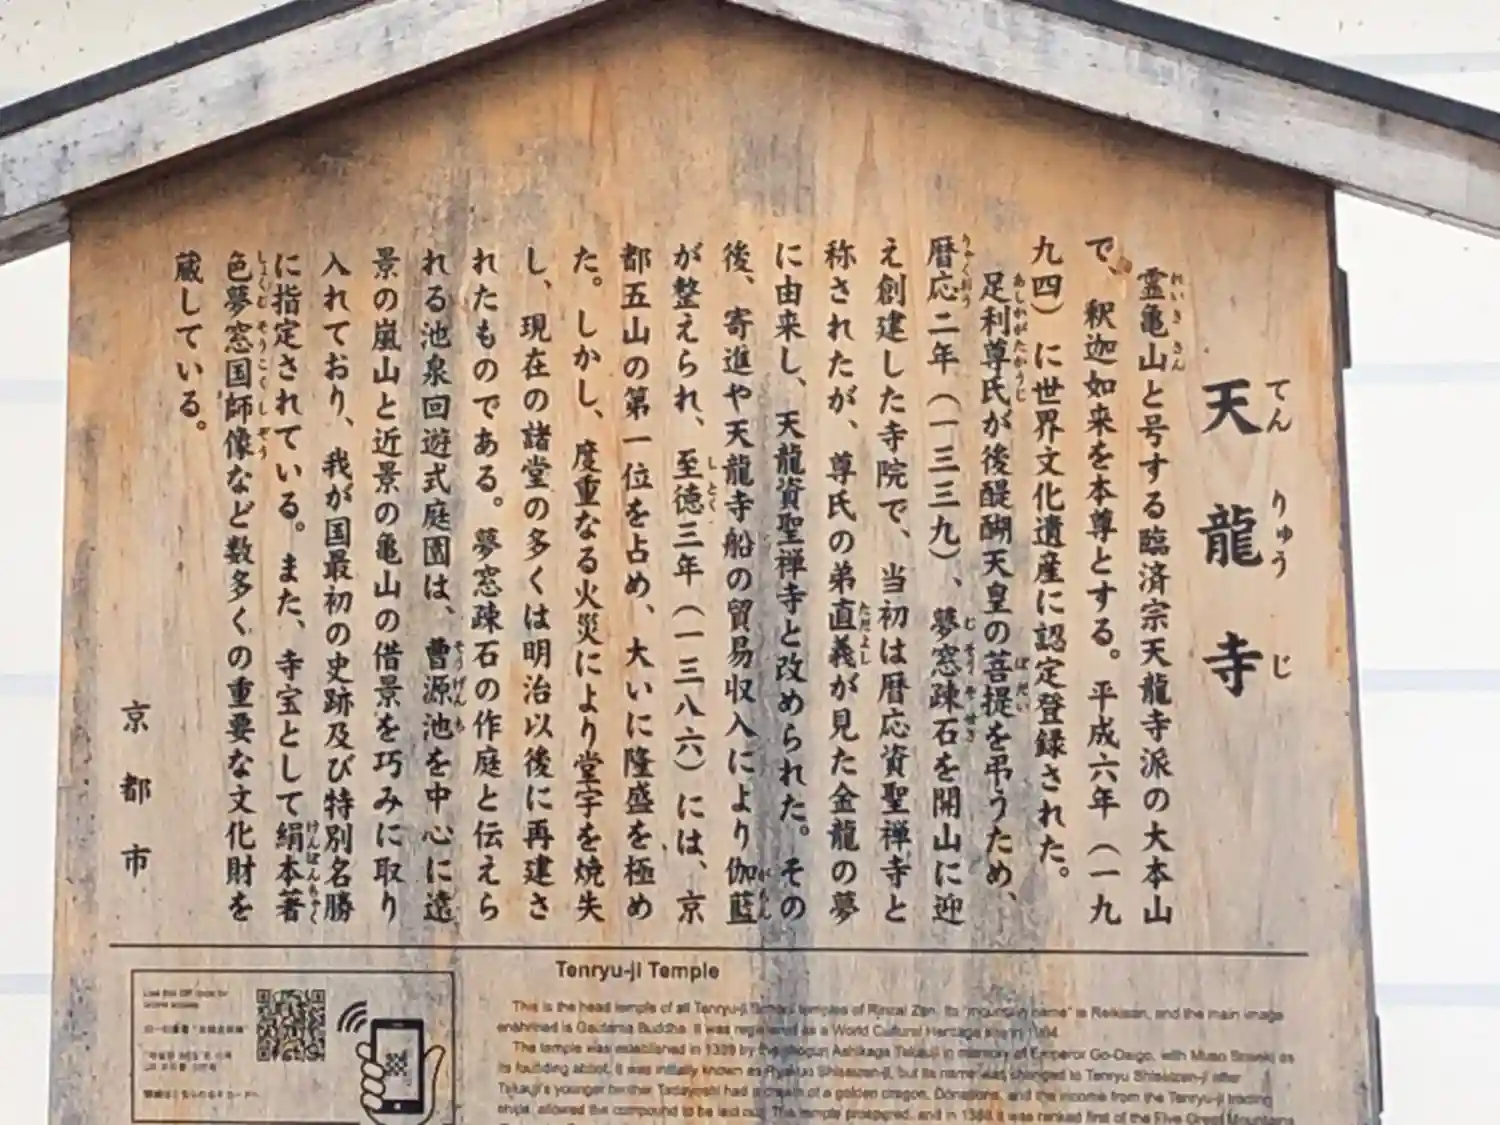 天龍寺
てんりゅうじ
霊亀山と号する臨済宗天龍寺派の大本山
で、釈迦如来を本尊とする。平成六年(一九
九四)に世界文化遺産に認定登録された。
足利尊氏が後醍醐天皇の菩提を弔うため、
暦応二年(一三三九)、夢窓疎石を開山に迎
え創建した寺院で、当初は暦応資聖禅寺と
称されたが、尊氏の弟直義が見た金龍の夢
に由来し、天龍資聖禅寺と改められた。その
後、寄進や天龍寺船の貿易収入により伽藍
が整えられ、至徳三年(一三八六)には、京
都五山の第一位を占め、大いに隆盛を極め
た。しかし、度重なる火災により堂宇を焼失
し、現在の諸堂の多くは明治以後に再建さ
れたものである。夢窓疎石の作庭と伝えら
れる池泉回遊式庭園は、曹源池を中心に遠
景の嵐山と近景の亀山の借景を巧みに取り
入れており、我が国最初の史跡及び特別名勝
に指定されている。また、寺宝として絹本著
色夢窓国師像など数多くの重要な文化財を
蔵している。
京都市
Tenryu-ji Temple
This is the head temple of all Tenryu-ji temples of Rinzai Zen. Its "mountain name" is Reikisan, and the main image
enshrined is Gautama Buddha. It was registered as a World Cultural Heritage site in 1994.
The temple was established in 1339 by the shogun Ashikaga Takauji in memory of Emperor Go-Daigo, with Muso Soseki as
its founding abbot. It was initially known as Ryakuo Shiseizen-ji, but its name was changed to Tenryu Shiseizen-ji after
Takauji's younger brother Tadayoshi had a dream of a golden dragon. Donations, and the income from the Tenryu-ji trading
ships, allowed the compound to be laid out. The temple prospered, and in 1386 it was ranked first of the Five Great Mountains